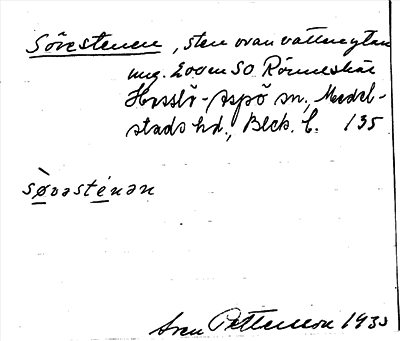 Sövestenen, sten ovan vattenytan
ung. 200 m SO Rönneskär
Hasslö-Aspö sn., Medel-
stads hd., Blek. l. 135
sø̀vəsténən
Sven Petterson 1933